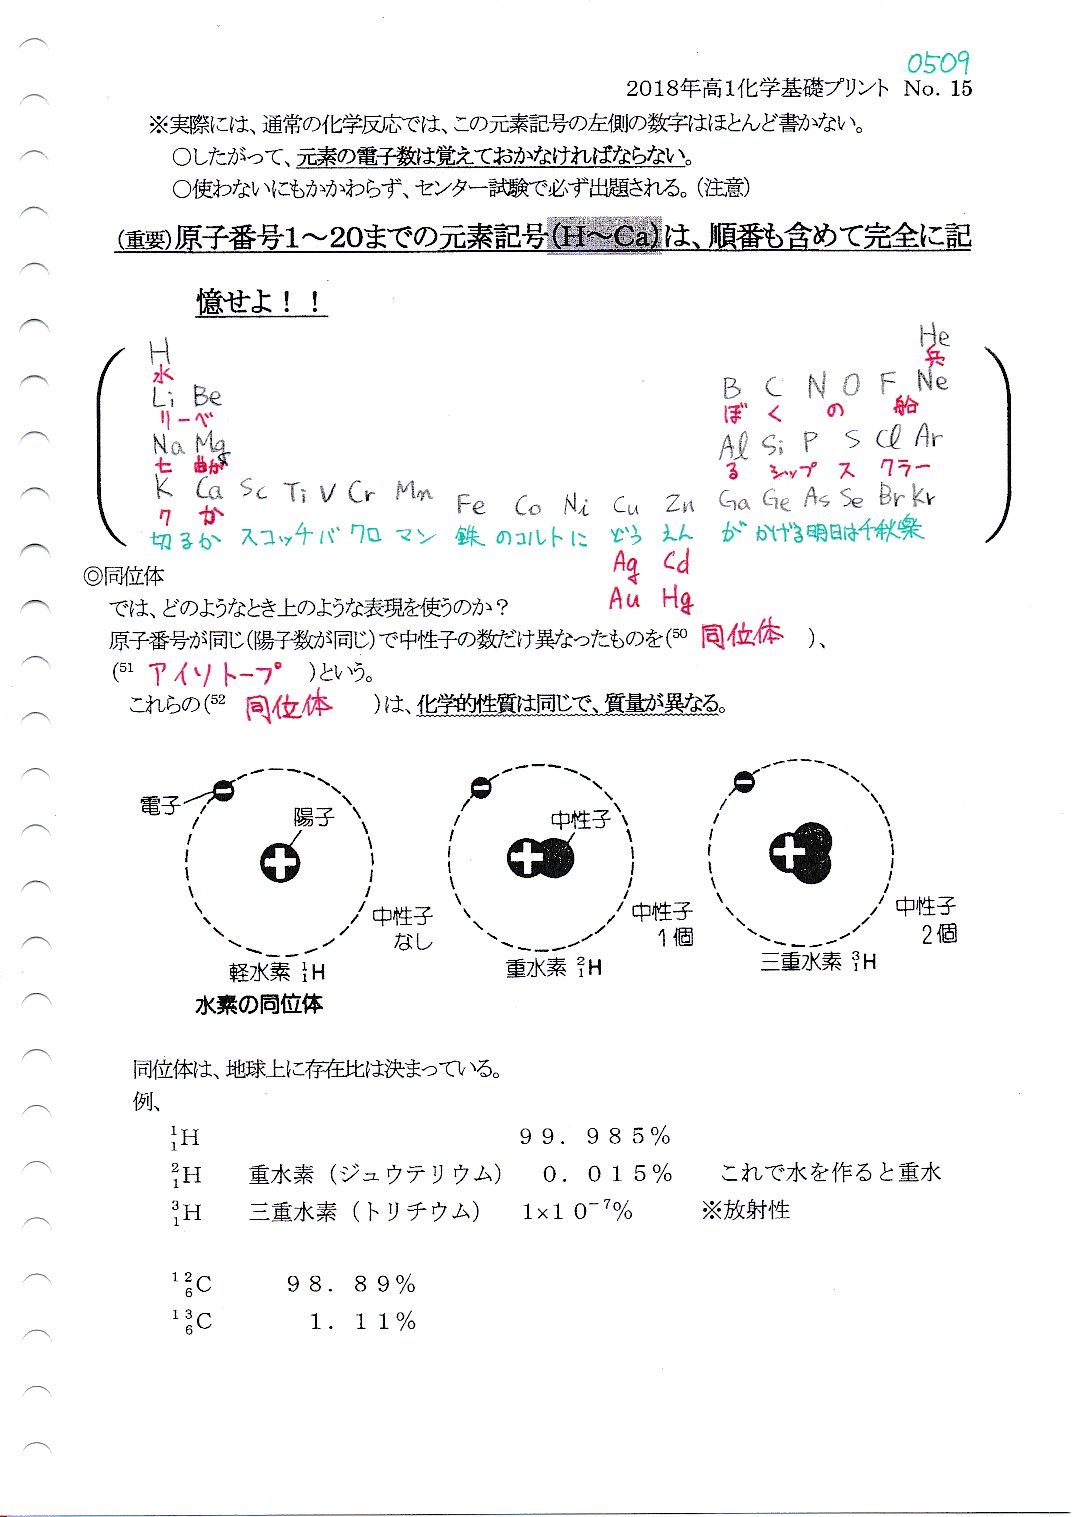 0509
2018年高1化学基礎プリント No. 15
※実際には、通常の化学反応では、この元素記号の左側の数字はほとんど書かない。
○したがって、元素の電子数は覚えておかなければならない。
○使わないにもかかわらず、センター試験で必ず出題される。（注意）
（重要）原子番号1～20までの元素記号（H～Ca）は、順番も含めて完全に記
憶せよ！！
H He
水 兵
Li Be B C N O F Ne
リーベ ぼ く の 船
Na Mg Al Si P S Cl Ar
七 曲が る シップ ス クラー
K Ca Sc Ti V Cr Mn Fe Co Ni Cu Zn Ga Ge As Se Br Kr
ク か
切るか スコッチバ クロ マン 鉄 のコルトに どう えん が かげる明日は千秋楽
Ag Cd
Au Hg
◎同位体
では、どのようなとき上のような表現を使うのか？
原子番号が同じ（陽子数が同じ）で中性子の数だけ異なったものを（⁵⁰ 同位体 ）、
（⁵¹ アイソトープ ）という。
これらの（⁵² 同位体 ）は、化学的性質は同じで、質量が異なる。
電子 陽子 中性子
中性子なし 中性子1個 中性子2個
軽水素 ¹₁H 重水素 ²₁H 三重水素 ³₁H
水素の同位体
同位体は、地球上に存在比は決まっている。
例、
¹₁H 99．985％
²₁H 重水素（ジュウテリウム） 0．015％ これで水を作ると重水
³₁H 三重水素（トリチウム） 1×10⁻⁷％ ※放射性
¹²₆C 98．89％
¹³₆C 1．11％